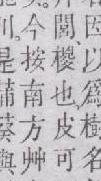 因以爲樹名
閩椶也皮可
今按南方艸
是蒲葵與